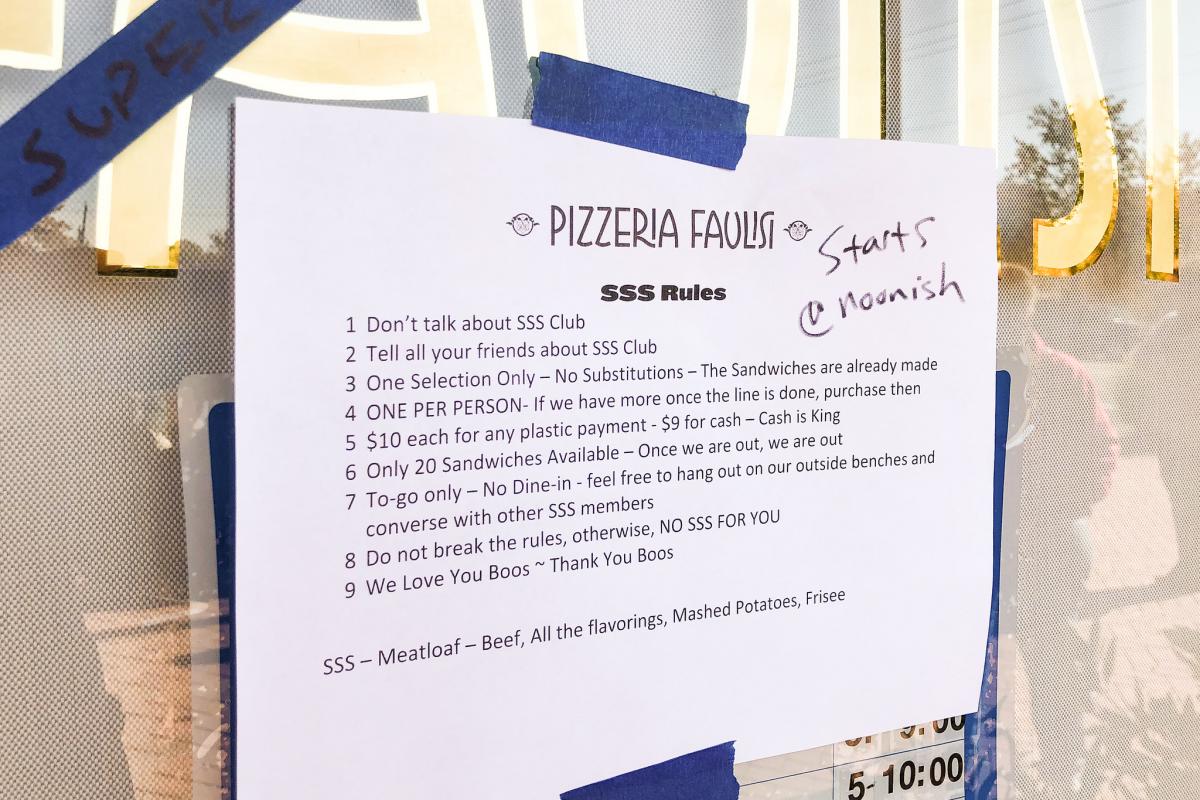 SUPER
PIZZERIA FAULISI
Starts
@ noonish
SSS Rules
1 Don't talk about SSS Club
2 Tell all your friends about SSS Club
3 One Selection Only – No Substitutions – The Sandwiches are already made
4 ONE PER PERSON- If we have more once the line is done, purchase then
5 $10 each for any plastic payment - $9 for cash – Cash is King
6 Only 20 Sandwiches Available – Once we are out, we are out
7 To-go only – No Dine-in - feel free to hang out on our outside benches and
converse with other SSS members
8 Do not break the rules, otherwise, NO SSS FOR YOU
9 We Love You Boos ~ Thank You Boos
SSS – Meatloaf – Beef, All the flavorings, Mashed Potatoes, Frisee
9:00
5-10:00